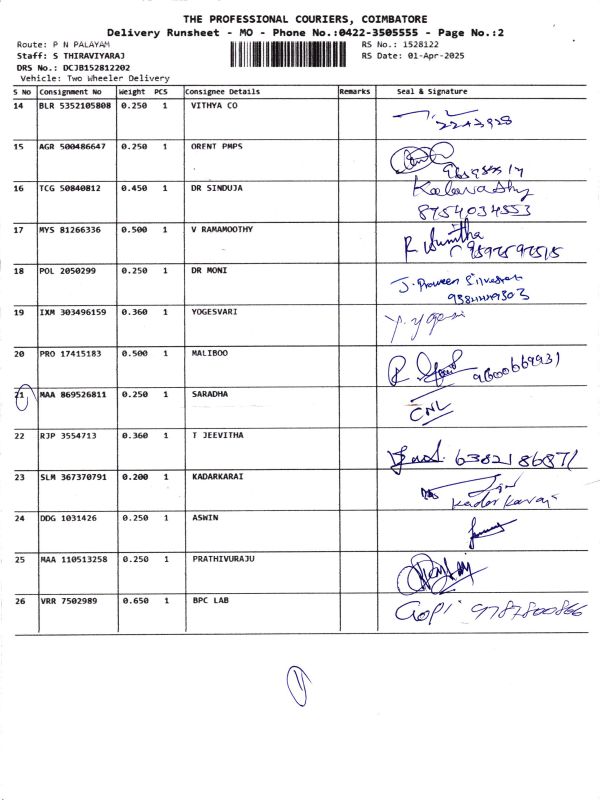 THE PROFESSIONAL COURIERS, COIMBATORE
Delivery Runsheet - MO - Phone No.:0422-3505555 - Page No.:2
Route: P N PALAYAM RS No.: 1528122
Staff: S THIRAVIYARAJ RS Date: 01-Apr-2025
DRS No.: DCJB152812202
Vehicle: Two Wheeler Delivery
S No Consignment No Weight PCS Consignee Details Remarks Seal & Signature
14 BLR 5352105808 0.250 1 VITHYA CO
15 AGR 500486647 0.250 1 ORENT PMPS
16 TCG 50840812 0.450 1 DR SINDUJA
8754034553
17 MYS 81266336 0.500 1 V RAMAMOOTHY
9597597515
18 POL 2050299 0.250 1 DR MONI J. Praveen Silvester
19 IXM 303496159 0.360 1 YOGESVARI
20 PRO 17415183 0.500 1 MALIBOO 9600669931
21 MAA 869526811 0.250 1 SARADHA CNL
22 RJP 3554713 0.360 1 T JEEVITHA
6382186871
23 SLM 367370791 0.200 1 KADARKARAI
Kadarkarai
24 DDG 1031426 0.250 1 ASWIN
25 MAA 110513258 0.250 1 PRATHIVURAJU
26 VRR 7502989 0.650 1 BPC LAB Gopi 9787800866